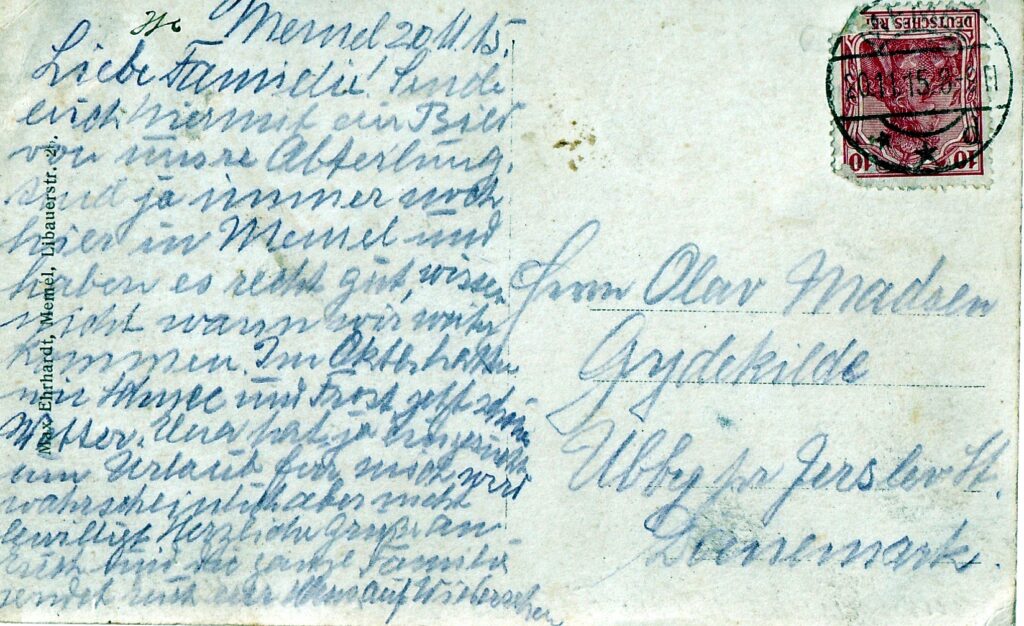 Memel 20.11.15.
Liebe Familie! Sende
euch hiermit ein Bild
von unsre Abteilung,
sind ja immer noch
hier in Memel und
haben es recht gut, wissen
nicht wann wir weiter
kommen. Im Okter hatten
wir Schnee und Frost jetzt schön
Wetter. hat ja
um Urlaub für mich, wird
wahrscheinlich aber nicht
bewilligt Herzliche Grüße an
Euch und die ganze Familie
sendet euch auf Wiedersehen
Max Ehrhardt, Memel, Libauerstr. 2
DEUTSCHES RE
10 10
20.11.15. 8-9N
Herrn Olav Madsen
Gydekilde
Ubby pr Jerslev St.
Dänemark.